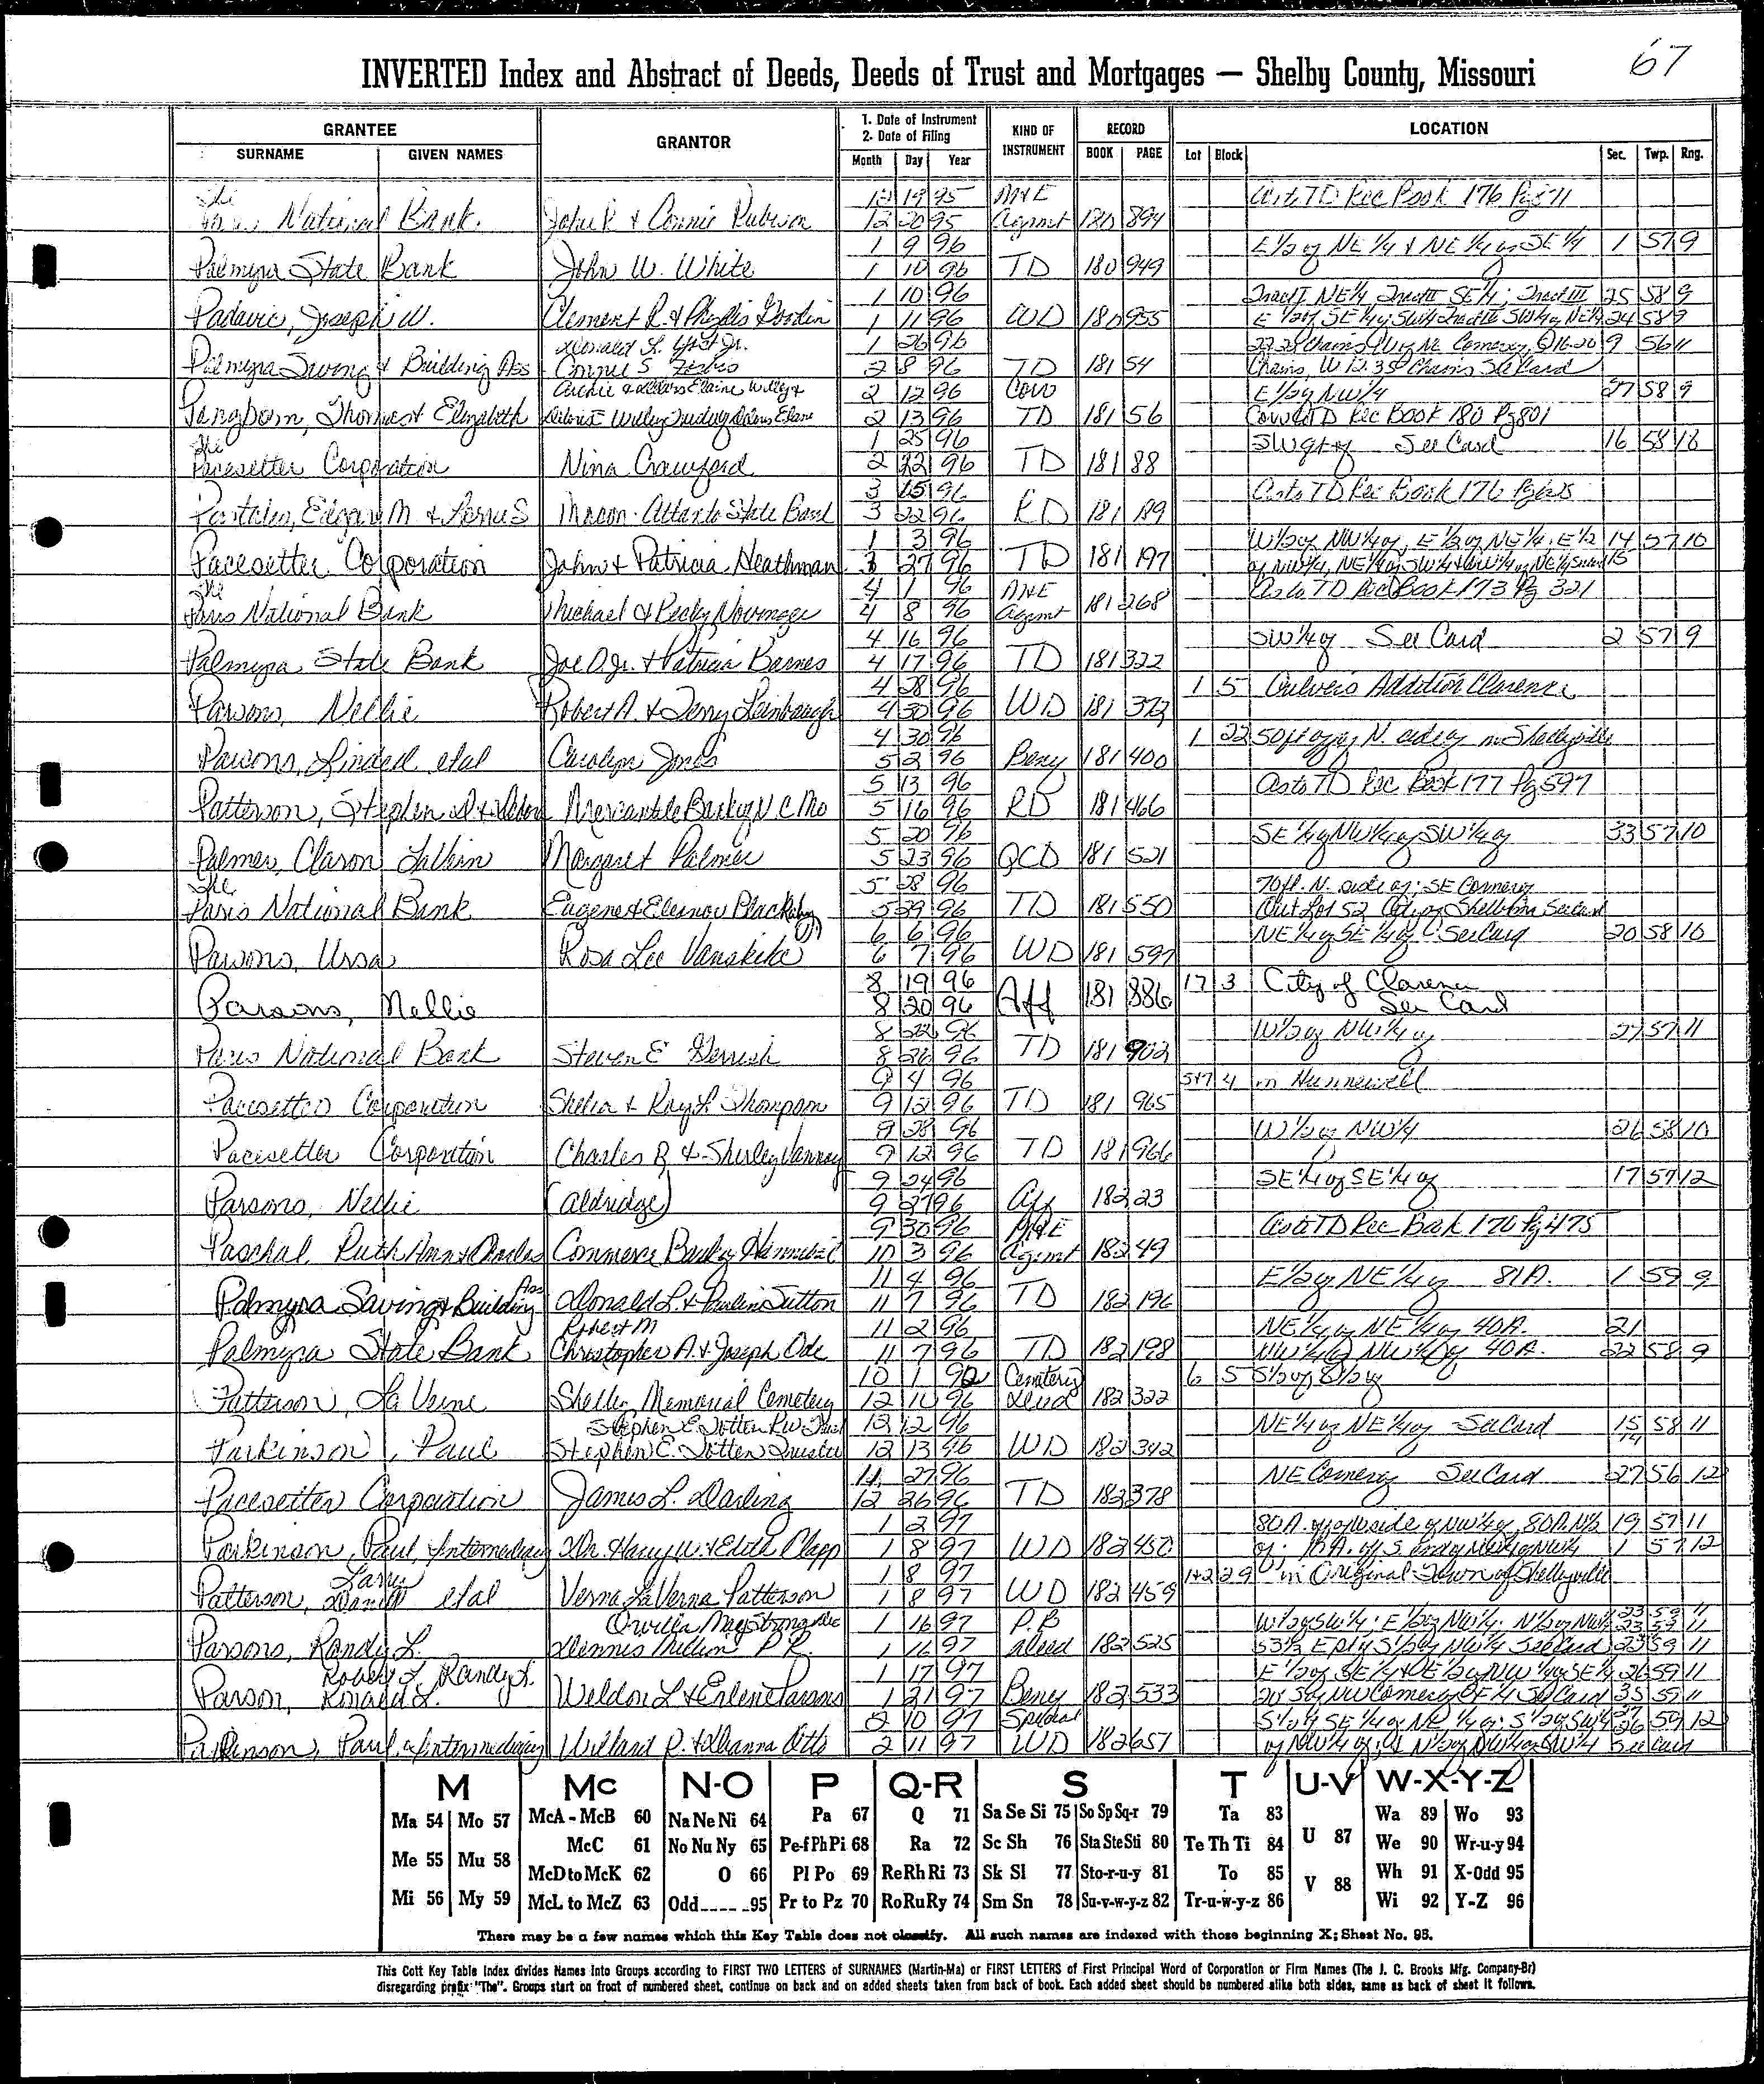 67
INVERTED Index and Abstract of Deeds, Deeds of Trust and Mortgages — Shelby County, Missouri
GRANTEE GRANTOR 1. Date of Instrument 2. Date of Filing KIND OF INSTRUMENT RECORD LOCATION
SURNAME GIVEN NAMES Month Day Year BOOK PAGE Lot Block Sec. Twp. Rng.
The 12 19 95 AND E As to TD Rec Book 176 Pg
National Bank. John R & Connie 12 20 95 Agemt 894
1 9 96 E 1/2 of NE 1/4 & NE 1/4 of SE 1/4 1 57 9
Palmyra State Bank John W. White 1 10 96 TD 180 949
1 10 96 Tract I NE 1/4 Tract II SE 1/4; Tract III 25 58 9
Padavic, Joseph W. Clement R. & Phyllis 1 11 96 WD 180 955 24 58 9
1 26 96 9 56 11
Palmyra Saving & Building Ass 2 8 96 TD 181 54 See Card
2 12 96 E 1/2 of NW 1/4 27 58 9
Pangborn, Thomas & Elizabeth 2 13 96 TD 181 56 TD Rec Book 180 Pg 801
The 1 25 96 SW qt of See Card 16 58 10
Pacesetter Corporation Nina Crawford 2 22 96 TD 181 88
3 15 96 As to TD Rec Book 176 Pg
Edgar M & Macon-Atlanta State Bank 3 22 96 RD 181 189
1 3 96 W 1/2 of NW 1/4 of, E 1/2 of NE 1/4, E 1/2 14 57 10
Pacesetter Corporation John & Patricia Heathman 3 27 96 TD 181 197 15
The 4 1 96 As to TD Rec Book 173 Pg 321
Paris National Bank Michael & Becky Novinger 4 8 96 Agemt 181 268
4 16 96 SW 1/4 of See Card 2 57 9
Palmyra State Bank Joe O. Jr. & Patricia Barnes 4 17 96 TD 181 322
4 28 96 1 5 Culvers Addition Clarence
Parsons, Nellie Robert A. & Terry Leinbaugh 4 30 96 WD 181 372
4 30 96 1 22 50 ft N. side of in Shelbyville
Parsons, Lindell etal Carolyn Jones 5 2 96 Beny 181 400
5 13 96 As to TD Rec Book 177 Pg 597
Patterson, Stephen Mercantile Bank of N.C. Mo 5 16 96 RD 181 466
5 20 96 SE 1/4 of NW 1/4 of SW 1/4 of 33 57 10
Palmer, Claron LaVern Margaret Palmer 5 23 96 QCD 181 521
The 5 28 96 70 ft. N. side of; SE Corner of
Paris National Bank Eugene & Eleanor Blackaby 5 29 96 TD 181 550 Out Lot 52 City of Shelbina See Card
6 6 96 NE 1/4 of SE 1/4 of See Card 20 58 10
Parsons, Ursa Rosa Lee Vanskike 6 7 96 WD 181 597
8 19 96 17 3 City of Clarence
Parsons, Nellie 8 20 96 Aff 181 886 See Card
8 22 96 W 1/2 of NW 1/4 of 27 57 11
Paris National Bank Steven E Gerrish 8 26 96 TD 181 902
9 4 96 5+7 4 in Hunnewell
Pacesetter Corporation Shelia & Ray L Thompson 9 12 96 TD 181 965
28 96 W 1/2 of NW 1/4 26 58 10
Pacesetter Corporation Charles R & Shirley Vannoy 9 12 96 TD 181 966
9 24 96 SE 1/4 of SE 1/4 of 17 57 12
Parsons, Nellie (Aldridge) 9 27 96 Aff 182 23
9 30 96 As to TD Rec Book 170 Pg 475
Paschal, Ruth Ann & Charles Commerce Bank of Hannibal 10 3 96 Agemt 182 49
Ass 11 4 96 E 1/2 of NE 1/4 of 81 A. 1 59 9
Palmyra Saving & Building Donald L. & Pauline Sutton 11 7 96 TD 182 196
Robert M 11 2 96 NE 1/4 of NE 1/4 of 40 A. 21
Palmyra State Bank Christopher A. & Joseph Ode 11 7 96 TD 182 198 NW 1/4 of NW 1/4 of 40 A. 22 58 9
10 1 92 Cemetery 6 5 S 1/2 of S 1/2 of
Patterson, La Verne Shelby Memorial Cemetery 12 10 96 Deed 182 322
Stephen E. Totten 12 12 96 NE 1/4 of NE 1/4 of See Card 15 58 11
Parkinson, Paul Stephen E. Totten Trustee 12 13 96 WD 182 342 14
11 27 96 NE Corner of See Card 27 56 12
Pacesetter Corporation James L. Darling 12 26 96 TD 182 378
1 2 97 80 A. 19 57 11
Parkinson, Paul, Intermediary Harry W. & Edith Clapp 1 8 97 WD 182 450 1 57 12
Larry 1 8 97 1+2 29 in Original Town of Shelbyville
Patterson, Daniel etal Verna LaVerna Patterson 1 8 97 WD 182 459
1 16 97 P.R 23 59 11
Parsons, Randy L. Dennis P.R. 1 16 97 deed 182 525 See Card 23 59 11
Robert L Randy L. 1 17 97 E 1/2 of SE 1/4 & E 1/2 of NW 1/4 of SE 1/4 26 59 11
Parson, Ronald L. Weldon L & Erlene Parsons 1 21 97 Beny 182 533 See Card 35 59 11
2 10 97 Special 26 59 12
Parkinson, Paul, Intermediary Willard R. & Deanna Otto 2 11 97 WD 182 651 See Card
M Mc N-O P Q-R S T U-V W-X-Y-Z
Ma 54 Mo 57 McA - McB 60 Na Ne Ni 64 Pa 67 Q 71 Sa Se Si 75 So Sp Sq-r 79 Ta 83 U 87 Wa 89 Wo 93
Me 55 Mu 58 McC 61 No Nu Ny 65 Pe-f Ph Pi 68 Ra 72 Sc Sh 76 Sta Ste Sti 80 Te Th Ti 84 V 88 We 90 Wr-u-y 94
Mi 56 My 59 McD to McK 62 O 66 Pl Po 69 Re Rh Ri 73 Sk Sl 77 Sto-r-u-y 81 To 85 Wh 91 X-Odd 95
McL to McZ 63 Odd 95 Pr to Pz 70 Ro Ru Ry 74 Sm Sn 78 Su-v-w-y-z 82 Tr-u-w-y-z 86 Wi 92 Y-Z 96
There may be a few names which this Key Table does not classify. All such names are indexed with those beginning X; Sheet No. 95.
This Cott Key Table Index divides Names Into Groups according to FIRST TWO LETTERS of SURNAMES (Martin-Ma) or FIRST LETTERS of First Principal Word of Corporation or Firm Names (The J. C. Brooks Mfg. Company-Br)
disregarding prefix "The". Groups start on front of numbered sheet, continue on back and on added sheets taken from back of book. Each added sheet should be numbered alike both sides, same as back of sheet it follows.